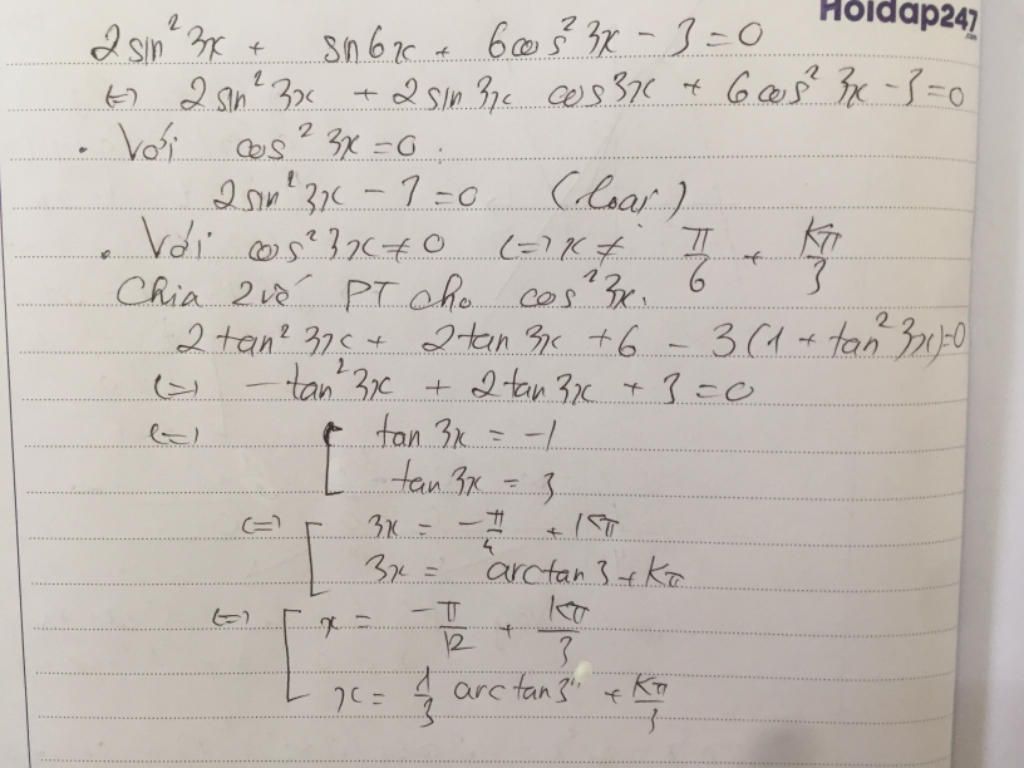 Hoidap247
.com
2sin²3x + sn6x + 6cos²3x - 3 = 0
(=) 2sin²3x + 2sin3x cos3x + 6cos²3x - 3 = 0
. Với cos²3x = 0 :
2sin²3x - 3 = 0 (loại)
. Với cos²3x ≠ 0 (=) x ≠ π/6 + kπ/3
Chia 2 vế PT cho cos²3x.
2tan²3x + 2tan3x + 6 - 3(1 + tan²3x) = 0
(=) -tan²3x + 2tan3x + 3 = 0
(=) [ tan3x = -1
tan3x = 3
(=) [ 3x = -π/4 + kπ
3x = arctan3 + kπ
(=) [ x = -π/12 + kπ/3
x = 1/3 arctan3 + kπ/3